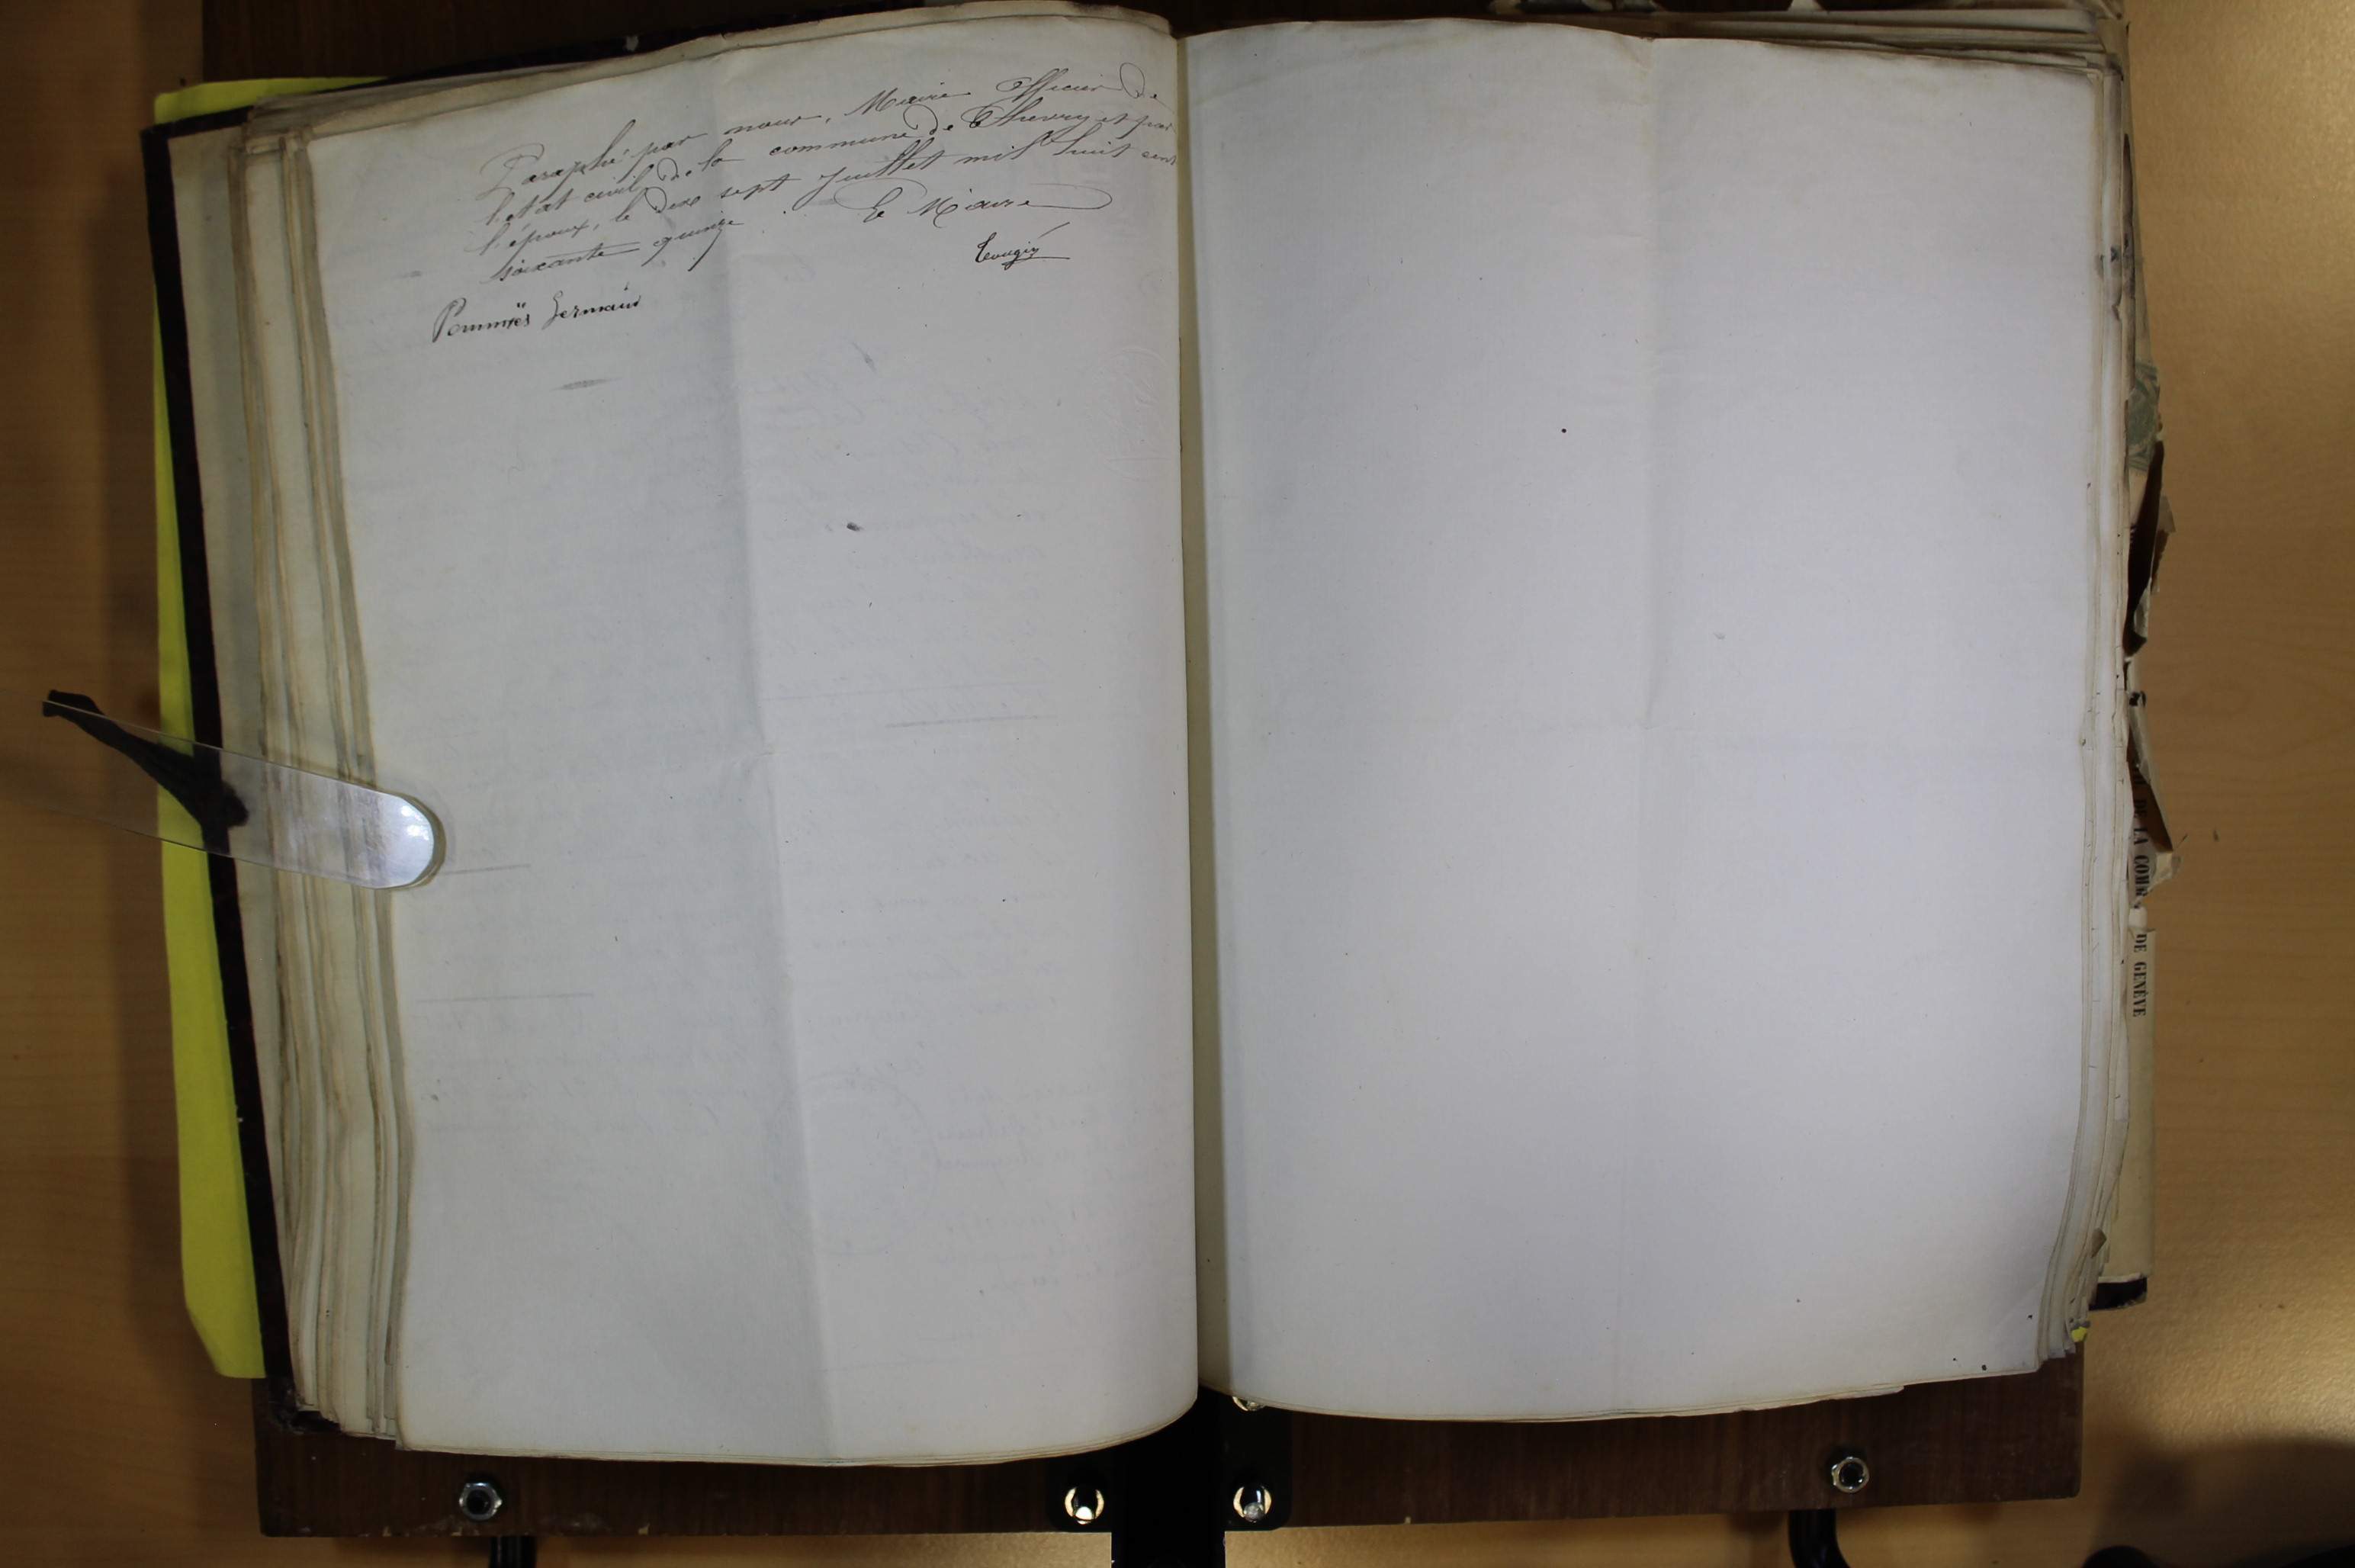 Paraphé par nous, Maire Officier de
l'état civil de la commune de Chevry et par
l'époux, le dix sept Juillet mil huit cent
soixante quinze. Le Maire
Pommiës Germain
DE LA COMM
DE GENÈVE